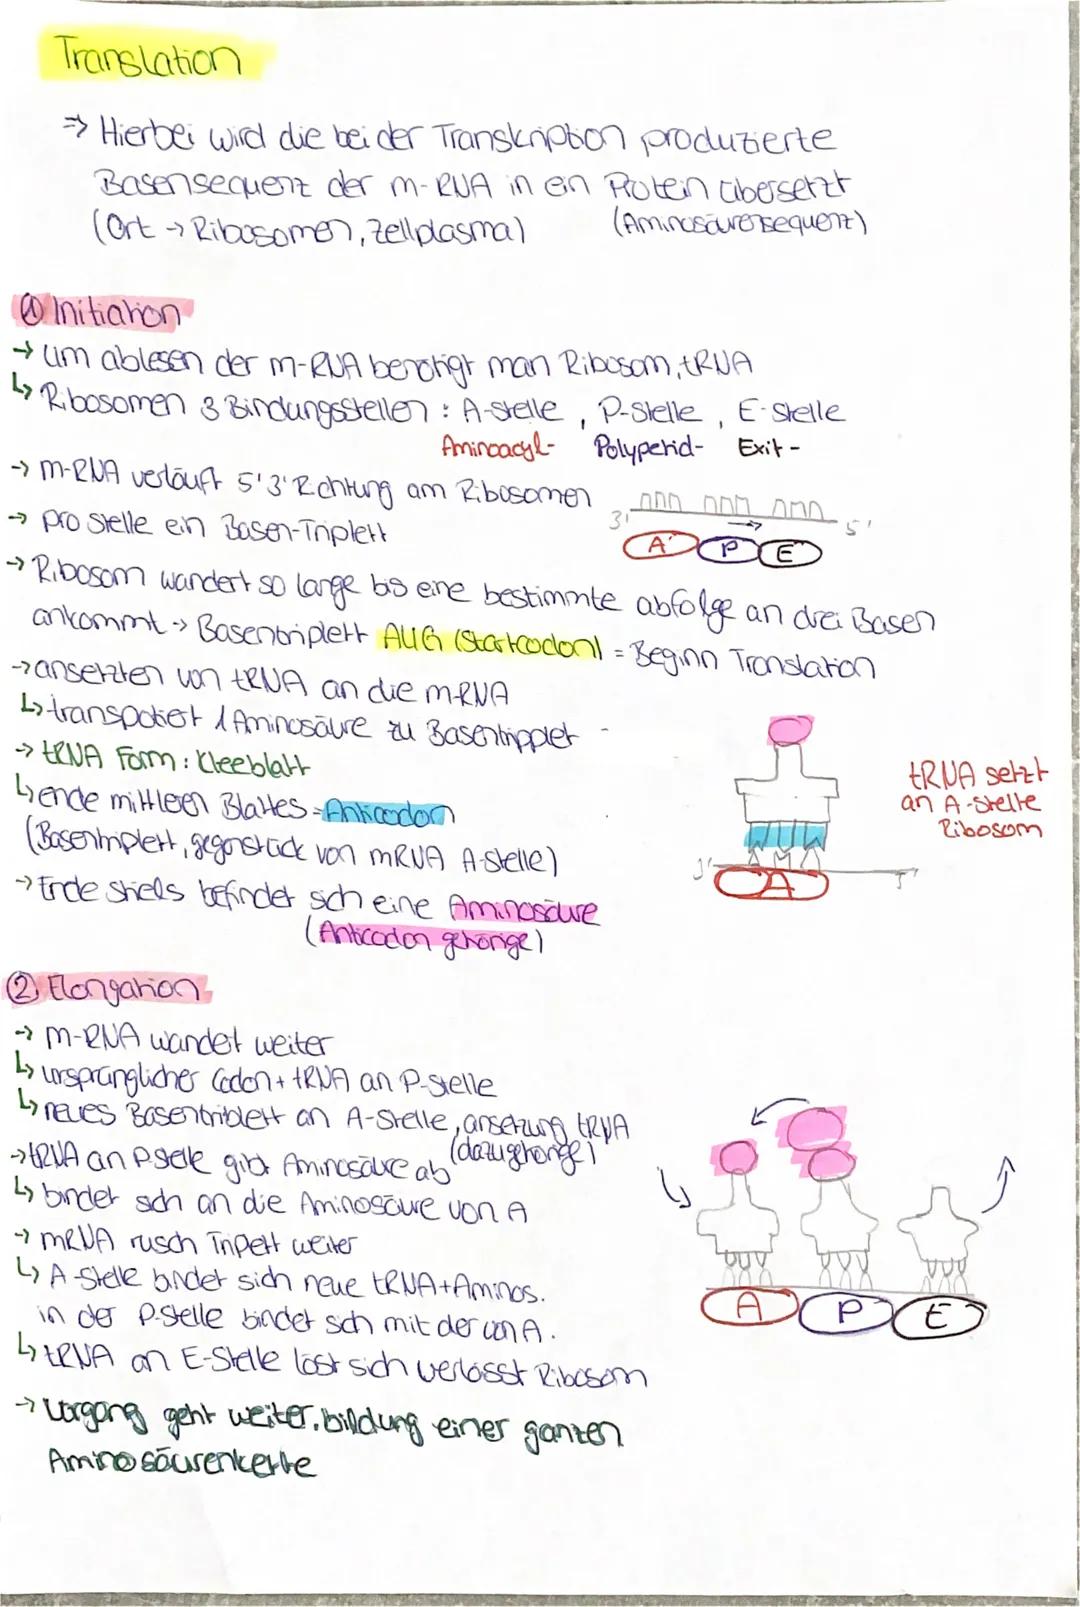 Translation
=> Hierbei wird die bei der Transkription produzierte
Basensequenz der m-RNA in ein Protein übersetzt
(Ort → Ribosomen, Zellplasma) (Aminosäuresequenz)
① Initiation
→ um ablesen der m-RNA benötigt man Ribosom, tRNA
↳ Ribosomen 3 Bindungsstellen : A-stelle , P-Stelle , E-Stelle
Aminoacyl- Polypetid- Exit-
→ m-RNA verläuft 5'3' Richtung am Ribosomen
→ pro Stelle ein Basen-Triplett
3' 5'
A P E
→ Ribosom wandert so lange bis eine bestimmte abfolge an drei Basen
ankommt → Basentriplett AUG (Startcodon) = Beginn Translation
→ ansetzten von tRNA an die mRNA
↳ transpotiert 1 Aminosäure zu Basentripplet
→ tRNA Form : Kleeblatt
↳ ende mittleren Blattes = Anticodon
(Basentriplett, gegenstück von mRNA A-Stelle)
→ Ende stiels befindet sich eine Aminosäure
(Anticodon gehörige)
tRNA setzt
an A-Stelle
Ribosom
3' A 5'
② Elongation
→ m-RNA wandet weiter
↳ ursprünglicher Codon + tRNA an P-Stelle
↳ neues Basentriblett an A-Stelle, ansetzung tRNA
(dazugehörige)
→ tRNA an P stelle gibt Aminosäure ab
↳ bindet sich an die Aminosäure von A
→ mRNA rusch Tripett weiter
↳ A-Stelle bindet sich neue tRNA+Aminos.
in der P-Stelle bindet sich mit der von A.
↳ tRNA an E-Stelle löst sich verlässt Ribosom
→ Vorgang geht weiter, bildung einer ganzen
Aminosäurenkette
A P E